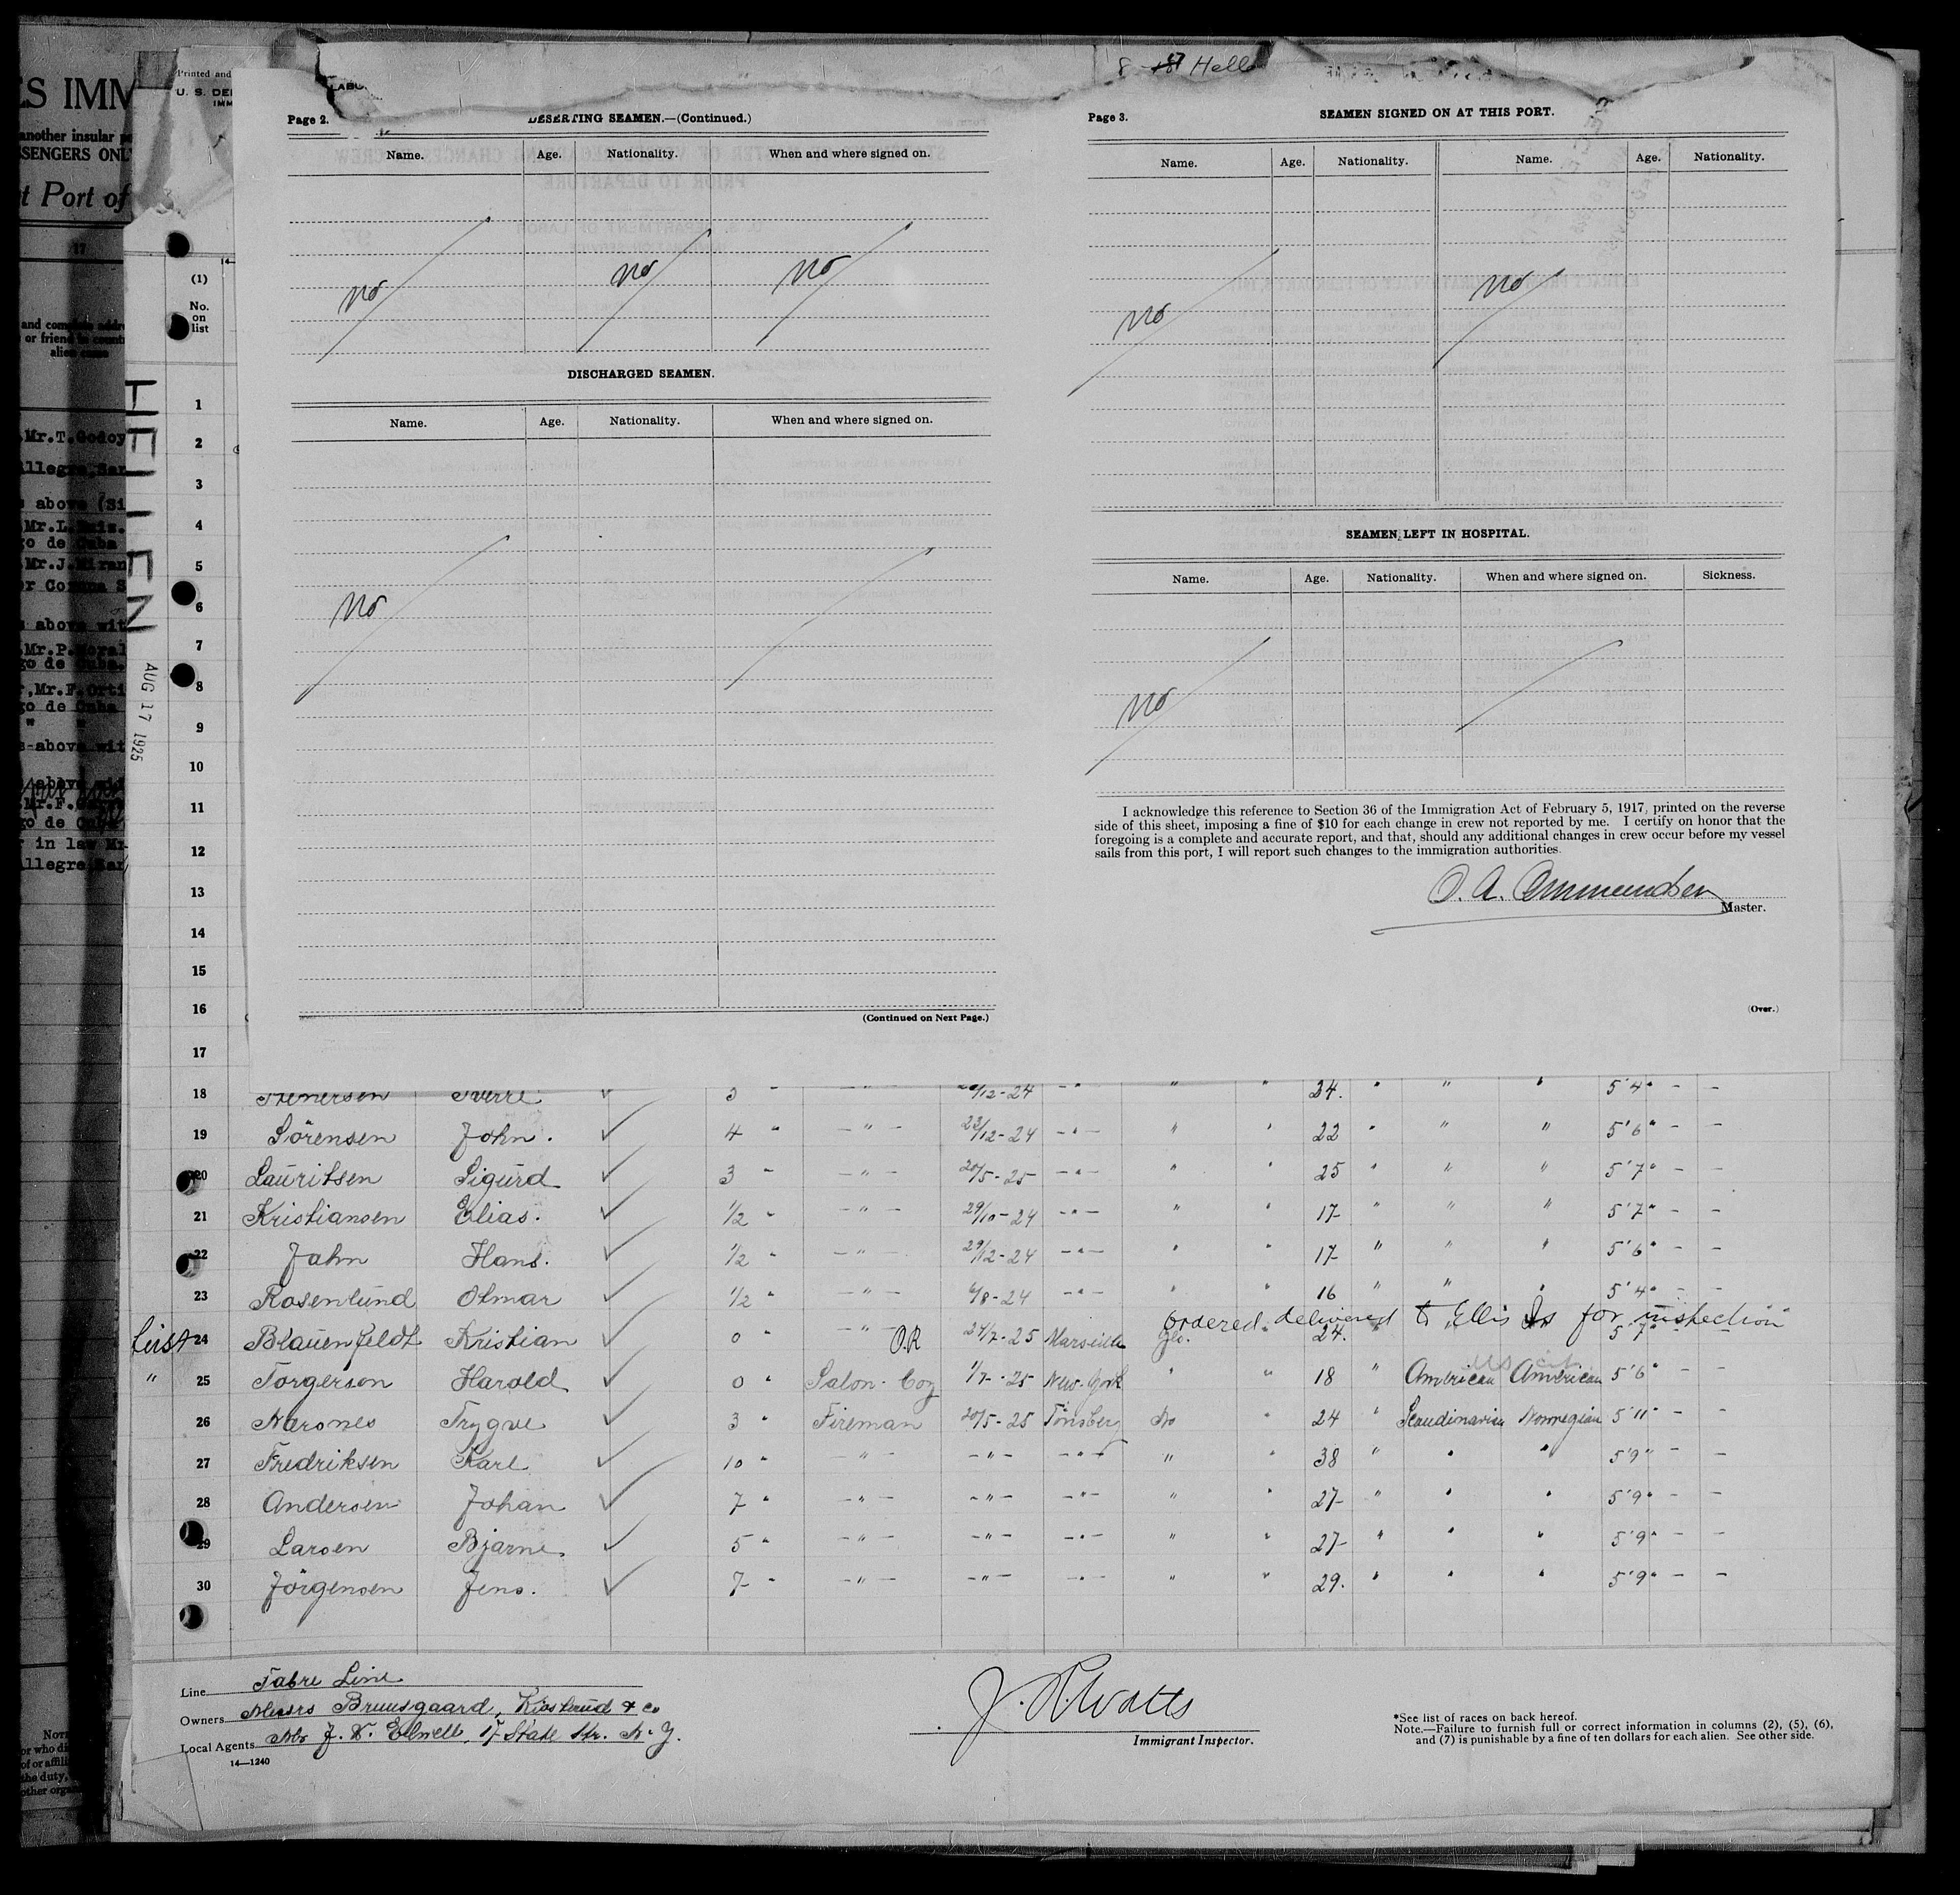 ES IMM
another insular po
SSENGERS ONL
t Port of
17
and complete addre
or friend in count
alien came
Mr.T.Godoy
llegre,San
s above (Si
Mr.L.Ruis.
go de Cuba
Mr.J.Miran
or Coruna S
s above wit
Mr.P.Moral
go de Cuba.
r,Mr.F.Orti
go de Cuba
" "
s above wit
s above wit
Mr.F.
go de Cuba
r in law Mr
llegre San
Printed and
U. S. DE
IMM
LABO
HELLEN
AUG 17 1925
(1)
No.
on
list
8 Hell
Page 2.
DESERTING SEAMEN.—(Continued.)
Name. Age. Nationality. When and where signed on.
no no no
DISCHARGED SEAMEN.
Name. Age. Nationality. When and where signed on.
no
(Continued on Next Page.)
Page 3.
SEAMEN SIGNED ON AT THIS PORT.
Name. Age. Nationality. Name. Age. Nationality.
no no
SEAMEN LEFT IN HOSPITAL.
Name. Age. Nationality. When and where signed on. Sickness.
no
I acknowledge this reference to Section 36 of the Immigration Act of February 5, 1917, printed on the reverse
side of this sheet, imposing a fine of $10 for each change in crew not reported by me. I certify on honor that the
foregoing is a complete and accurate report, and that, should any additional changes in crew occur before my vessel
sails from this port, I will report such changes to the immigration authorities.
O. A. Ommundsen
Master.
(Over.)
1
2
3
4
5
6
7
8
9
10
11
12
13
14
15
16
17
18 Sverre 3 " — " — /12-24 — " — " " 24. " " " 5'4" — —
19 Sörensen John. 4 " — " — 22/12-24 — " — " " 22 " " " 5'6" — —
20 Lauritsen Sigurd 3 " — " — 20/5-25 — " — " " 25 " " " 5'7" — —
21 Kristiansen Elias. 1/2 " — " — 29/10-24 — " — " " 17 " " " 5'7" — —
22 Jahn Hans. 1/2 " — " — 29/12-24 — " — " " 17 " " " 5'6" — —
23 Rosenlund Otmar 1/2 " — " — 6/8-24 — " — " " 16 " " " 5'4" — —
ordered delivered to Ellis Is for inspection
24 Blauenfeldt Kristian 0 " — " — O.R 24/7-25 Marseille " 24. " " 5'7" — —
" 25 Torgerson Harold 0 " Salon-Boy 1/7-25 New-York " " 18 " American American 5'6" — —
26 Narones Trygve 3 " Fireman 20/5-25 Tönsberg No " 24 " Scandinavian Norwegian 5'11" — —
27 Fredriksen Karl 10 " — " — — " — — " — " " 38 " " " 5'9" — —
28 Andersen Johan 7 " — " — — " — — " — " " 27 " " " 5'9" — —
29 Larsen Bjarne. 5 " — " — — " — — " — " " 27 " " " 5'9" — —
30 Jörgensen Jens. 7 " — " — — " — — " — " " 29. " " " 5'9" — —
Line Fabre Line
Owners Messrs Bruusgaard, Kiøsterud & Co
Local Agents Mr J. W. Elwell, 17 State Str. N.Y.
14—1240
J. R. Watts
Immigrant Inspector.
*See list of races on back hereof.
Note.—Failure to furnish full or correct information in columns (2), (5), (6),
and (7) is punishable by a fine of ten dollars for each alien. See other side.
Note
or who di
of or affili
the duty,
other orga